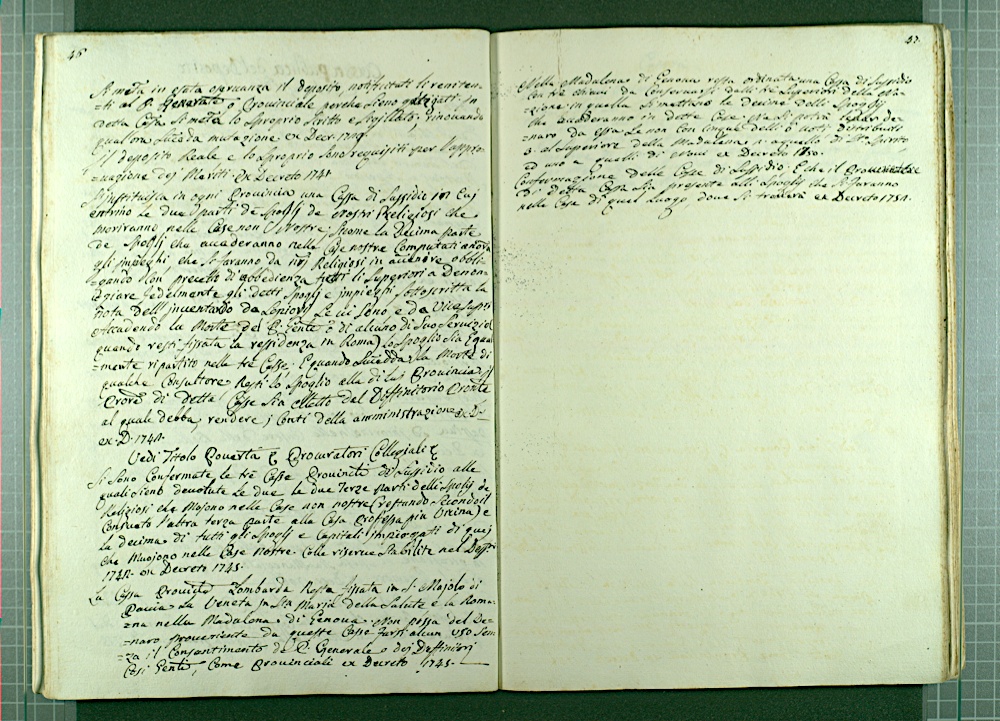 46
Si metta in esatta osservanza il deposito notificati li renitenti
=ti al P. Generale o Provinciale perche siono obligati. In
detta Cassa si metta lo Sproprio Scritto e Sigillato, rinovando
qualora succeda mutazione ex Decr.
Il deposito Reale e lo Sproprio sono requisiti per l'appro
=vazione dej Meriti. Ex Decreto 1741
S'instituisca in ogni Provincia una Cassa di Sussidio in cui
entrino le due parti de Spoglj de nostri Religiosi che
moriranno nelle Case non Nostre; siccome la Decima parte
de Spoglj che accaderanno nelle Case nostre Computati ancora
gli impieghi che si faranno da nri Religiosi in avvenire obbli-
gando con precetto di obbedienza tutti li Superiori a Denon-
ziare fedelmente gli detti Spoglj e impieghi sottoscritta la
nota dell'inventario da Lopiori se vi sono, e da Vice Supri
Accadendo la Morte del P. Gente o di alcuno di Suo Servizio
quando resti fissata la ressidenza in Roma lo Spoglio sia Equal
=mente ripartito nelle tre Casse. E quando succeda la Morte di
qualche Consultore Resti lo Spoglio alla di lui Provincia. Il
Prore di dette Casse sia eletto dal Deffinitorio
al quale debba rendere i Conti della amministrazione ex D.
ex. D. 1741.
Vedi Titolo Povertà e Procuratori Collegiali
Si sono Confermate le tre Casse Provinciali di Sussidio alle
quali siono devolute le due le due Terze parti delli Spoglj de
Religiosi che Mojono nelle Case non nostre (restando secondo il
Consueto l'altra terza parte alla Casa Professa più Vicina) e
la decima di tutti gli Spoglj e Capitali impiegati di quej
che Muojono nelle Case nostre. Colle riserve stabilite nel
ex Decreto 1745.
La Cassa Provinciale Lombarda Resta fissata in S. Majolo di
Pavia, la Veneta in Sta Maria della Salute e la Roma-
=na nella Madalena di Genova. Non possa del De-
=naro proveniente da queste Casse farsi alcun uso Sen
=za il Consentimento de P. Generale e dej Deffinitori
Cosi Genli, Come Provinciali ex Decreto 1745.
47
Nella Madalena di Genova resta ordinata una Cassa di Sussidio
con tre chiavi da Conservarsi dalli tre Superiori della Na-
zione in quella si mettano le Decime delle Spoglj
che accaderanno in dette Case. Ne si potrà levar de-
naro da essa se non con cinque delli 6 voti distribuiti
3. al Superiore della Madalena 2. a quello di Sto Spirito
ed uno a quelli di Novi ex Decreto 1750.
Confermazione delle Casse di Sussidio, E che il Provinciale
di detta Cassa sia presente alli Spoglj che si faranno
nelle Case di quel Luogo dove si troverà ex Decreto